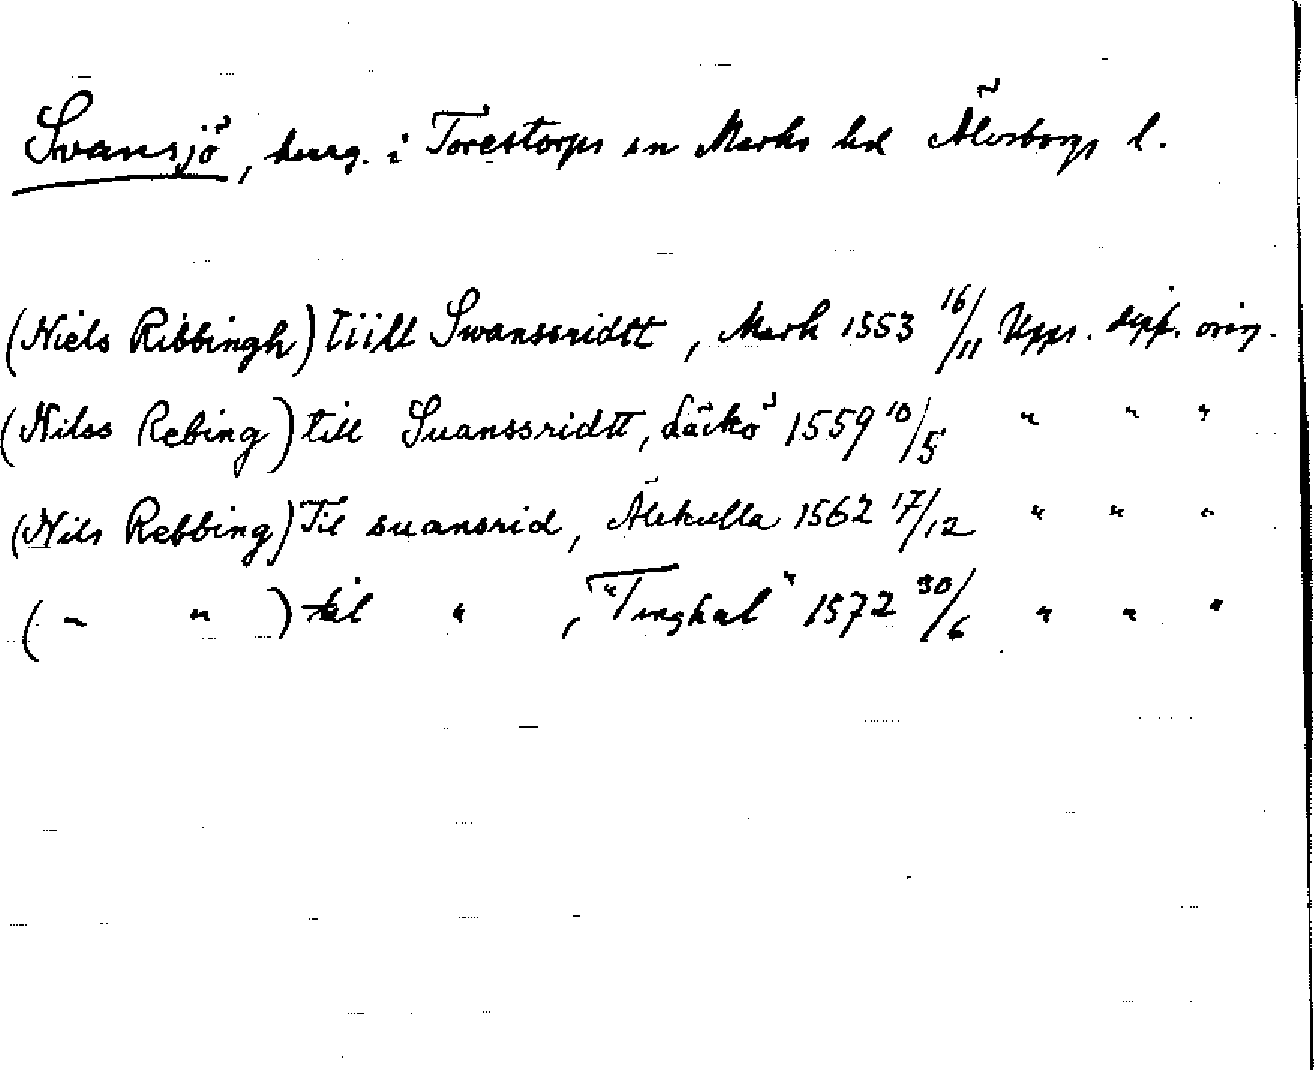 Svansjö, herrg. i Torestorps sn Marks hd Älvsborgs l.
(Niels Ribbingh) tiill Swanssridtt, Mark 1553 16/11 Upps. dipl. orig.
(Nilss Rebing) till Suanssridtt, Läckö 1559 10/5 " " "
(Nils Rebbing) Til suansrid, Älekulla 1562 17/12 " " "
( " " ) til " , "Tinghal" 1572 30/6 " " "